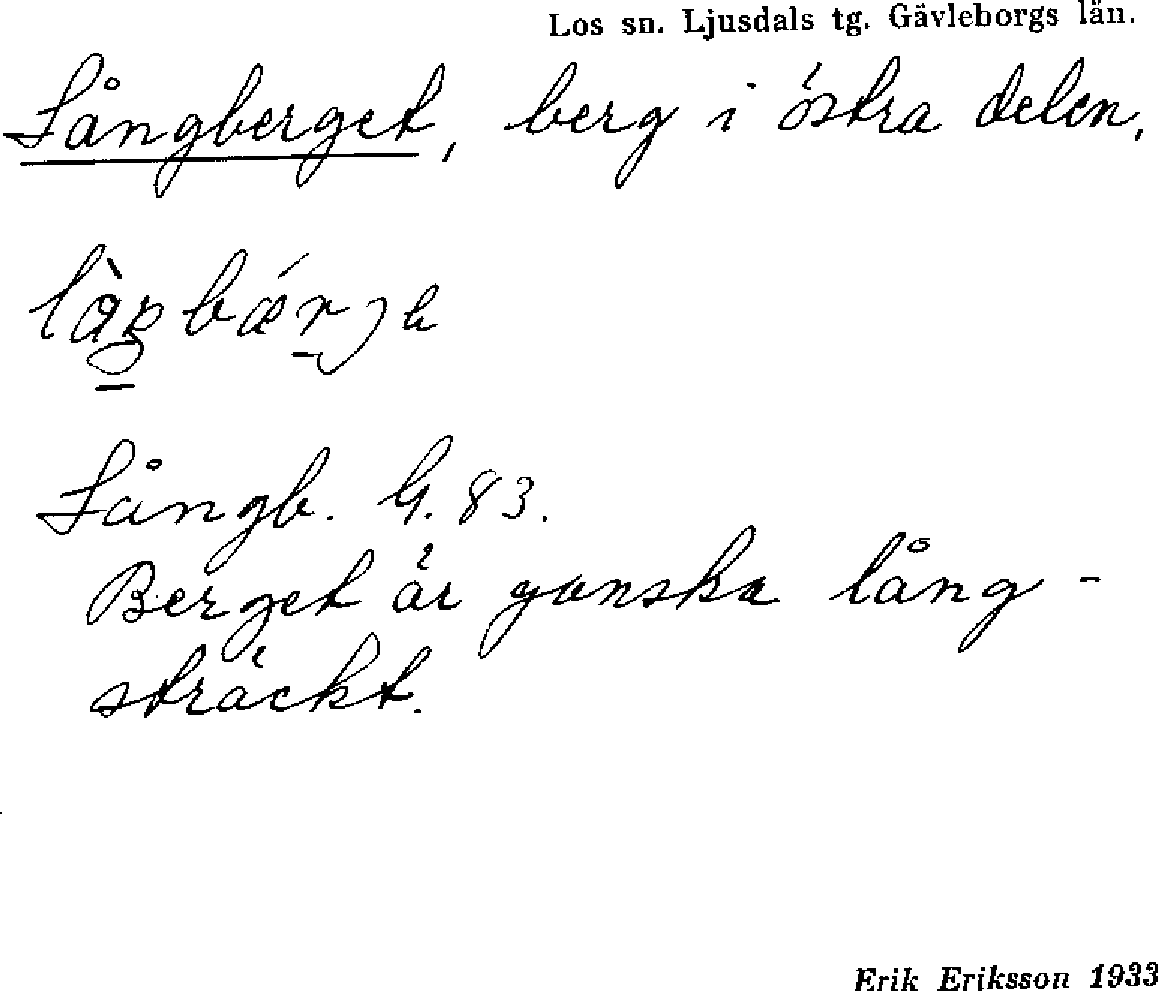 Los sn. Ljusdals tg. Gävleborgs län.
Långberget, berg i östra delen.
Långb. G. 83.
Berget är ganska lång-
sträckt.
Erik Eriksson 1933